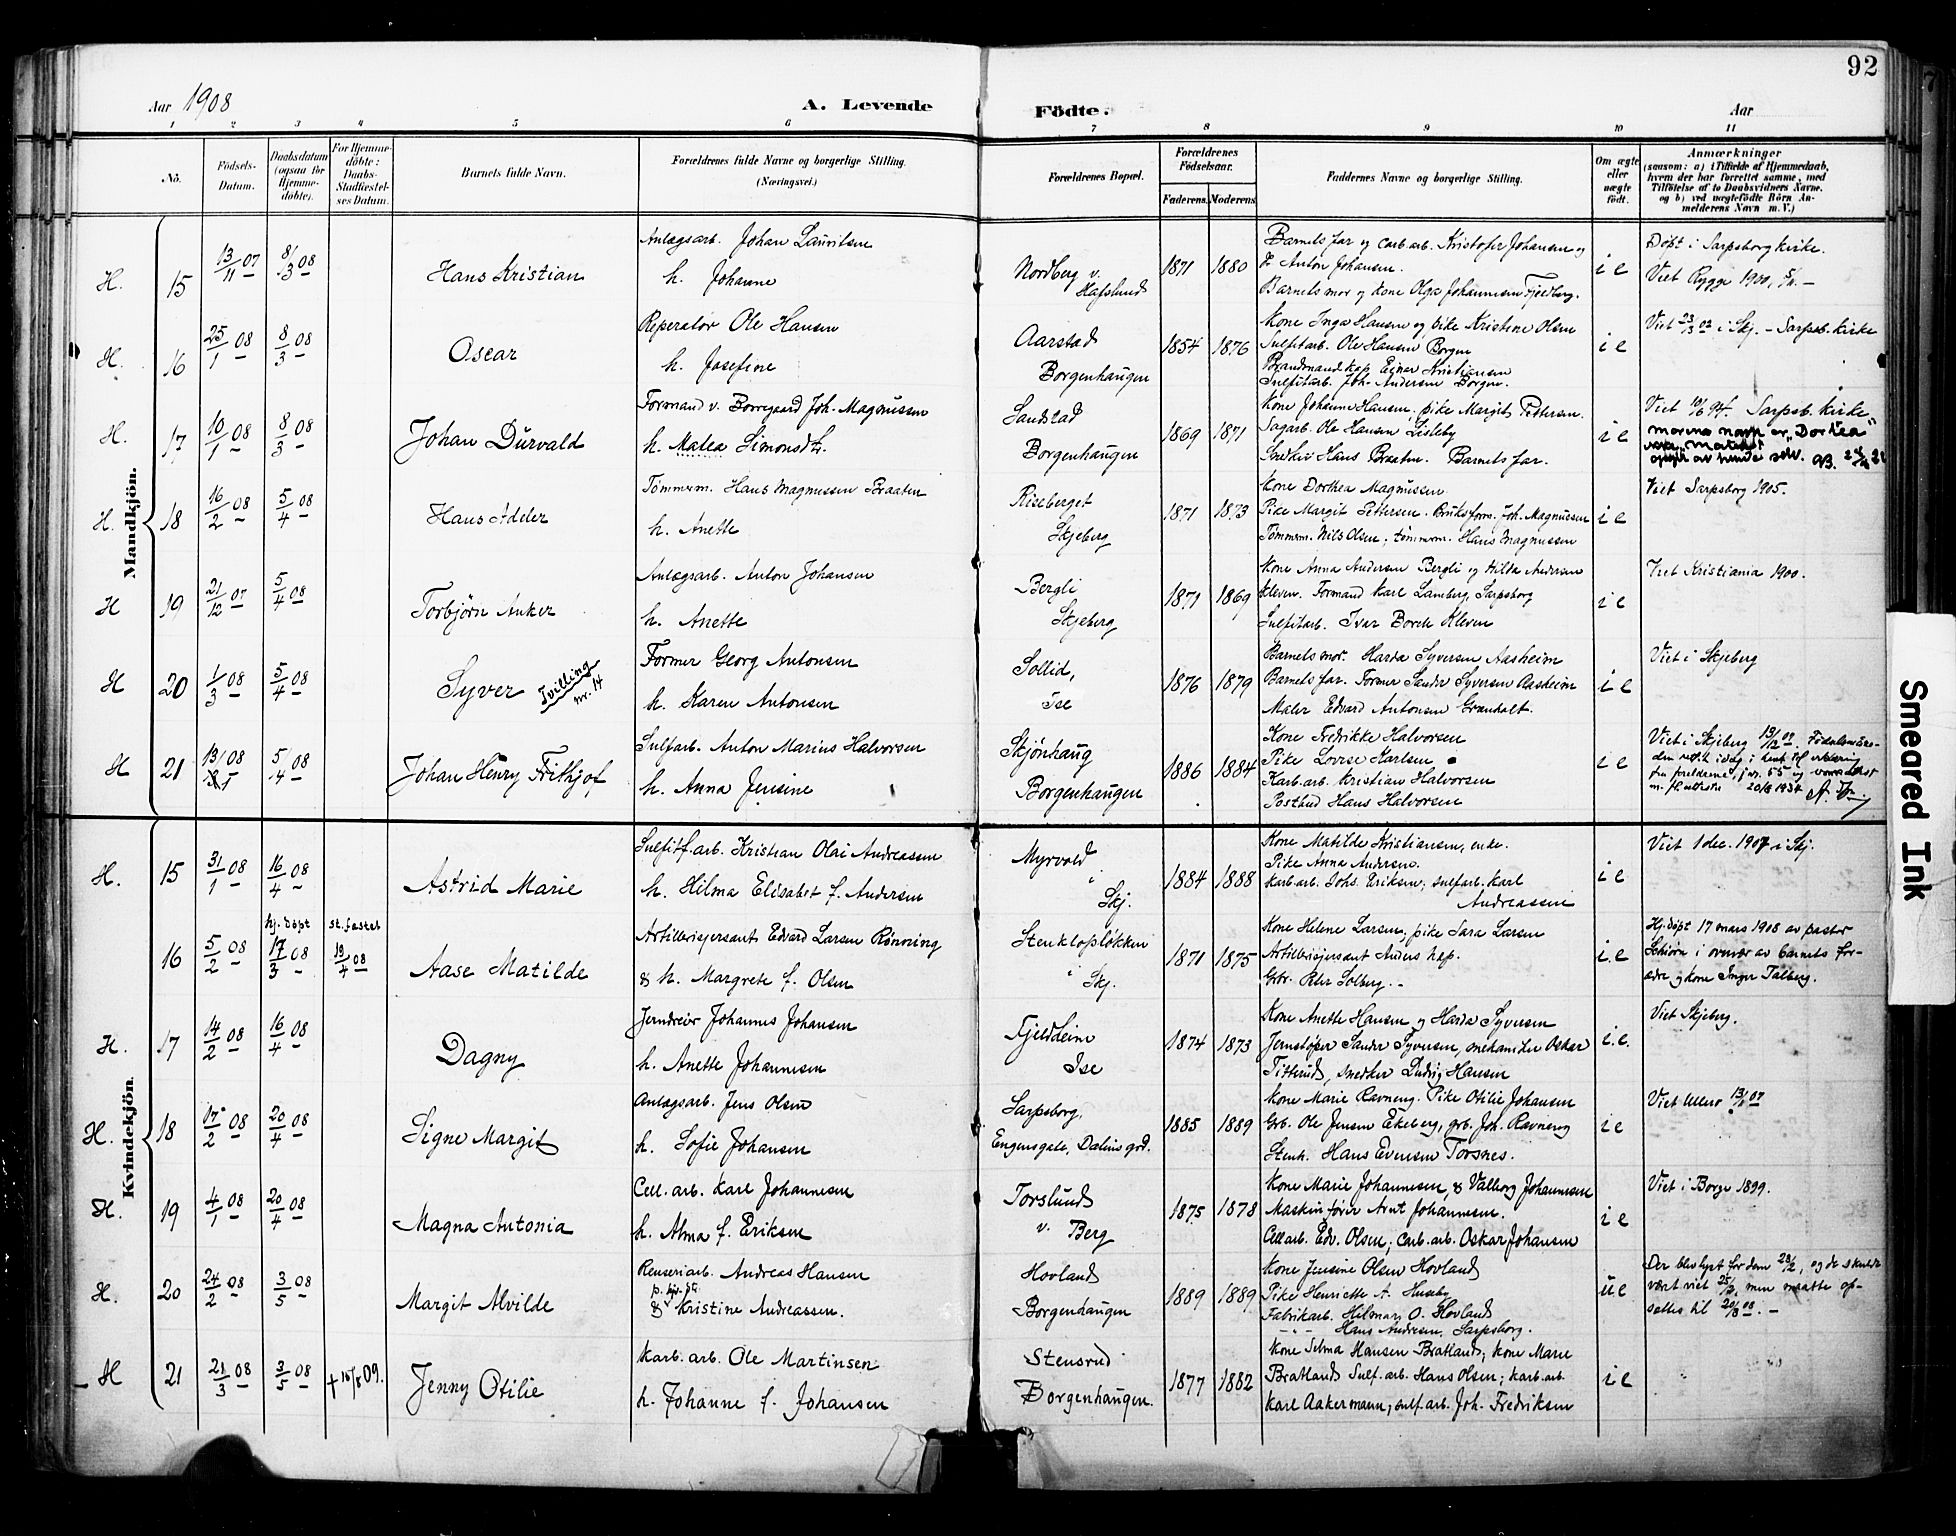 92
Aar 1908
A. Levende
Födte.
Aar
1 2 3 4 5 6 7 8 9 10 11
No.
Födsels-Datum.
Daabsdatum (ogsaa for Hjemmedöbte).
For Hjemmedöbte: Daabs-Stadfæstelses Datum.
Barnets fulde Navn.
Forældrenes fulde Navne og borgerlige Stilling. (Næringsvei.)
Forældrenes Bopæl.
Forældrenes Födselsaar.
Faderens. Moderens.
Faddernes Navne og borgerlige Stilling.
Om ægte eller uægte födt.
Anmærkninger
(saasom: a) i Tilfælde af Hjemmedaab, hvem der har forrettet samme, med Tilföielse af to Daabsvidners Navne, og b) ved uægtefödte Börn Anmelderens Navn m. V.)
Mandkjön.
H. 15 13/11 07 8/3 08 Hans Kristian
Anlægsarb. Johan Lauritsen
h. Johanne
Nordberg v. Hafslund
1871 1880
Barnets far og carb.arb. Kristofer Johansen og
Anton Johansen.
Barnets mor og kone Olga Johannesen Fjeldberg.
i e
Døbt i Sarpsborg kirke.
Viet Rygge 1900,
H. 16 25/1 08 8/3 08 Oscar
Reperatør Ole Hansen
h. Josefine
Aarstad
Borgenhaugen
1854 1876
Kone Inga Hansen og pike Kristine Olsen
Sulfitarb. Ole Hansen Borgen
Brandmand kop Ejner Kristiansen
Sulfitarb. Joh. Andersen Borgen.
i e
Viet 23/3 02 i Skj. - Sarpsb. kirke
H. 17 10/1 08 8/3 08 Johan Durvald
Formand v. Borregaard Joh. Magnussen
h. Malea Simonsdtr.
Sandstad
Borgenhaugen
1869 1871
Kone Johanne Hansen, pike Margit Pettersen.
Sagarb. Ole Hansen Lisleby
Snedker Hans Braaten. Barnets far.
i e
Viet 10/6 94. Sarpsb. kirke
morens navn er "Dortea"
av hende selv.
H. 18 16/2 08 5/4 08 Hans Adeler
Tømmerm. Hans Magnussen Braaten
h. Anette
Riseberget
Skjeberg
1871 1873
Kone Dorthea Magnussen
Pike Margit Pettersen. Bruksform. Joh. Magnussen
Tømmerm. Nils Olsen; tømmerm. Hans Magnussen
i e
Viet Sarpsborg 1905.
H 19 21/12 07 5/4 08 Torbjørn Anker
Anlægsarb. Anton Johansen
h. Anette
Bergli
Skjeberg
1871 1869
Kone Anna Andersen Bergli og Hilda Andersen
Kleven. Formand Karl Lamberg, Sarpsborg
Sulfitarb. Ivar Borch Kleven
i e
Viet Kristiania 1900.
H 20 1/3 08 5/4 08 Syver Tvilling nr. 14
Former Georg Antonsen
h. Karen Antonsen
Sollid,
Ise
1876 1879
Barnets mor. Harda Syversen Aasheim
Barnets far. Former Sander Syversen Aasheim
Maler Edvard Antonsen Grønholt.
i e
Viet i Skjeberg
H 21 13/1 08 5/4 08 Johan Henry Frithjof
Sulfarb. Anton Marius Halvorsen
h. Anna Jensine
Skjønhaug
Borgenhaugen
1886 1884
Kone Fredrikke Halvorsen
Pike Lovise Karlsen
Karb.arb. Kristian Halvorsen
Postbud Hans Halvorsen
i e
Viet i Skjeberg 13/12 07.
20/8 1934
Kvindekjön.
H. 15 31/1 08 16/4 08 Astrid Marie
Sulfitf.arb. Kristian Olai Andreassen
h. Hilma Elisabet f. Andersen
Myrvold
Skj.
1884 1888
Kone Matilde Kristiansen, enke.
Pike Anna Andersen.
Karb.arb. Johs. Eriksen; sulfarb. Karl
Andreassen
i e
Viet 1 des. 1907 i Skj.
hj. døpt st. fæstet
16 5/2 08 17/3 08 19/4 08 Aase Matilde
Artillerisersant Edvard Larsen Rønning
& h. Margrete f. Olsen
Stenkløpløkken
Skj.
1871 1875
Kone Helene Larsen; pike Sara Larsen
Artillerisersant Anders hep.
Grbr. Peter Solberg.
i. e
Hj.døpt 17 mars 1908 av pastor
Schiørn i overvær av barnets for-
ældre og kone Inger Talberg.
H. 17 14/2 08 16/4 08 Dagny
Jerndreier Johannes Johansen
h. Anette Johannesen
Fjeldheim
Ise
1874 1873
Kone Anette Hansen og Harda Syversen
Jernstøper Sander Syversen, mekaniker Oskar
Titterud, snedker Ludvig Hansen
i. e.
Viet Skjeberg.
H. 18 17/2 08 20/4 08 Signe Margit
Anlægsarb. Jens Olsen
h. Sofie Johansen
Sarpsborg,
Engensgate, Dalens grd.
1885 1889
Kone Marie Ravneng. Pike Otilie Johansen
Grb. Ole Jensen Ekeberg, grb. Joh. Ravneng
Stenh. Hans Evensen Torsnes.
i e
Viet Ullerø
H. 19 4/1 08 20/4 08 Magna Antonia
Cell. arb. Karl Johannesen
h. Alma f. Eriksen
Torslund
v. Berg
1875 1878
Kone Marie Johannesen, & Valborg Johannesen
Maskinfører Arnt Johannesen.
Cell.arb. Edv. Olsen; carb. arb. Oskar Johansen
i e
Viet i Borge 1899.
H. 20 24/2 08 3/5 08 Margit Alvilde
Renseriarb. Andreas Hansen
& Kristine Andreassen.
Hovland
Borgenhaugen
1889 1889
Kone Jensine Olsen Hovland
Pike Henriette A. Huseby
Fabrikarb. Hilmar O. Hovland
-"- Hans Andresen, Sarpsborg.
u e
Der blev lyst for dem 28/12, og de skulde
været viet 25/12, men maatte op-
sættes til 20/3 08. -
H 21 21/3 08 3/5 08 + 16/8 09. Jenny Otilie
Karb. arb. Ole Martinsen
h. Johanne f. Johansen
Stensrud
Borgenhaugen.
1877 1882
Kone Selma Hansen Bratland; kone Marie
Bratland Sulf. arb. Hans Olsen; karb. arb.
Karl Aakermann; sulf. arb. Joh. Fredriksen
i e
Smeared Ink